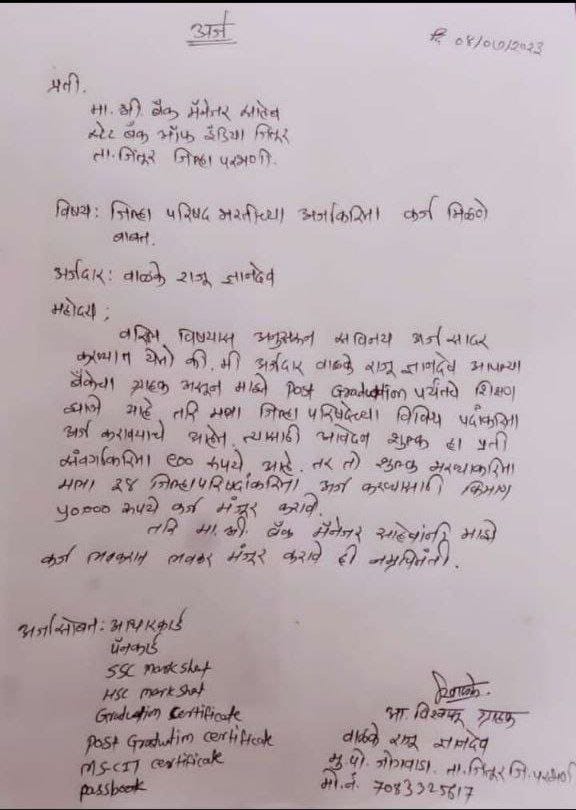 अर्ज
दि. 08/08/2023
प्रती,
मा. श्री. बँक मॅनेजर साहेब
स्टेट बँक ऑफ इंडिया जिंतूर
ता. जिंतूर जिल्हा परभणी.
विषय: जिल्हा परिषद भरतीच्या अर्जाकरिता कर्ज मिळणे
बाबत.
अर्जदार: वाळके राजू ज्ञानदेव
महोदय;
वरिल विषयास अनुसरून सविनय अर्ज सादर
करण्यात येतो की, मी अर्जदार वाळके राजू ज्ञानदेव आपल्या
बँकेचा ग्राहक असून माझे Post Graduation पर्यंतचे शिक्षण
झाले आहे. तरि मला जिल्हा परिषदेच्या विविध पदांकरिता
अर्ज करावयाचे आहेत. त्यासाठी आवेदन शुल्क हा प्रती
संवर्गाकरिता ९०० रुपये आहे. तर तो शुल्क भरण्याकरिता
मला ३४ जिल्हापरिषदांकरिता अर्ज करण्यासाठी किमान
५०,००० रुपये कर्ज मंजूर करावे.
तरि मा. श्री. बँक मॅनेजर साहेबांनी माझे
कर्ज लवकरात लवकर मंजूर करावे ही नम्रविनंती.
अर्जासोबत: आधारकार्ड
पॅनकार्ड
SSC mark sheet
HSC mark sheet
Graduation certificate
Post Graduation certificate
MS-CIT certificate
passbook
आ. विश्वासू ग्राहक
वाळके राजू ज्ञानदेव
मु. पो. जोगवाडा. ता. जिंतूर जि. परभणी
मो. नं. 7083325617